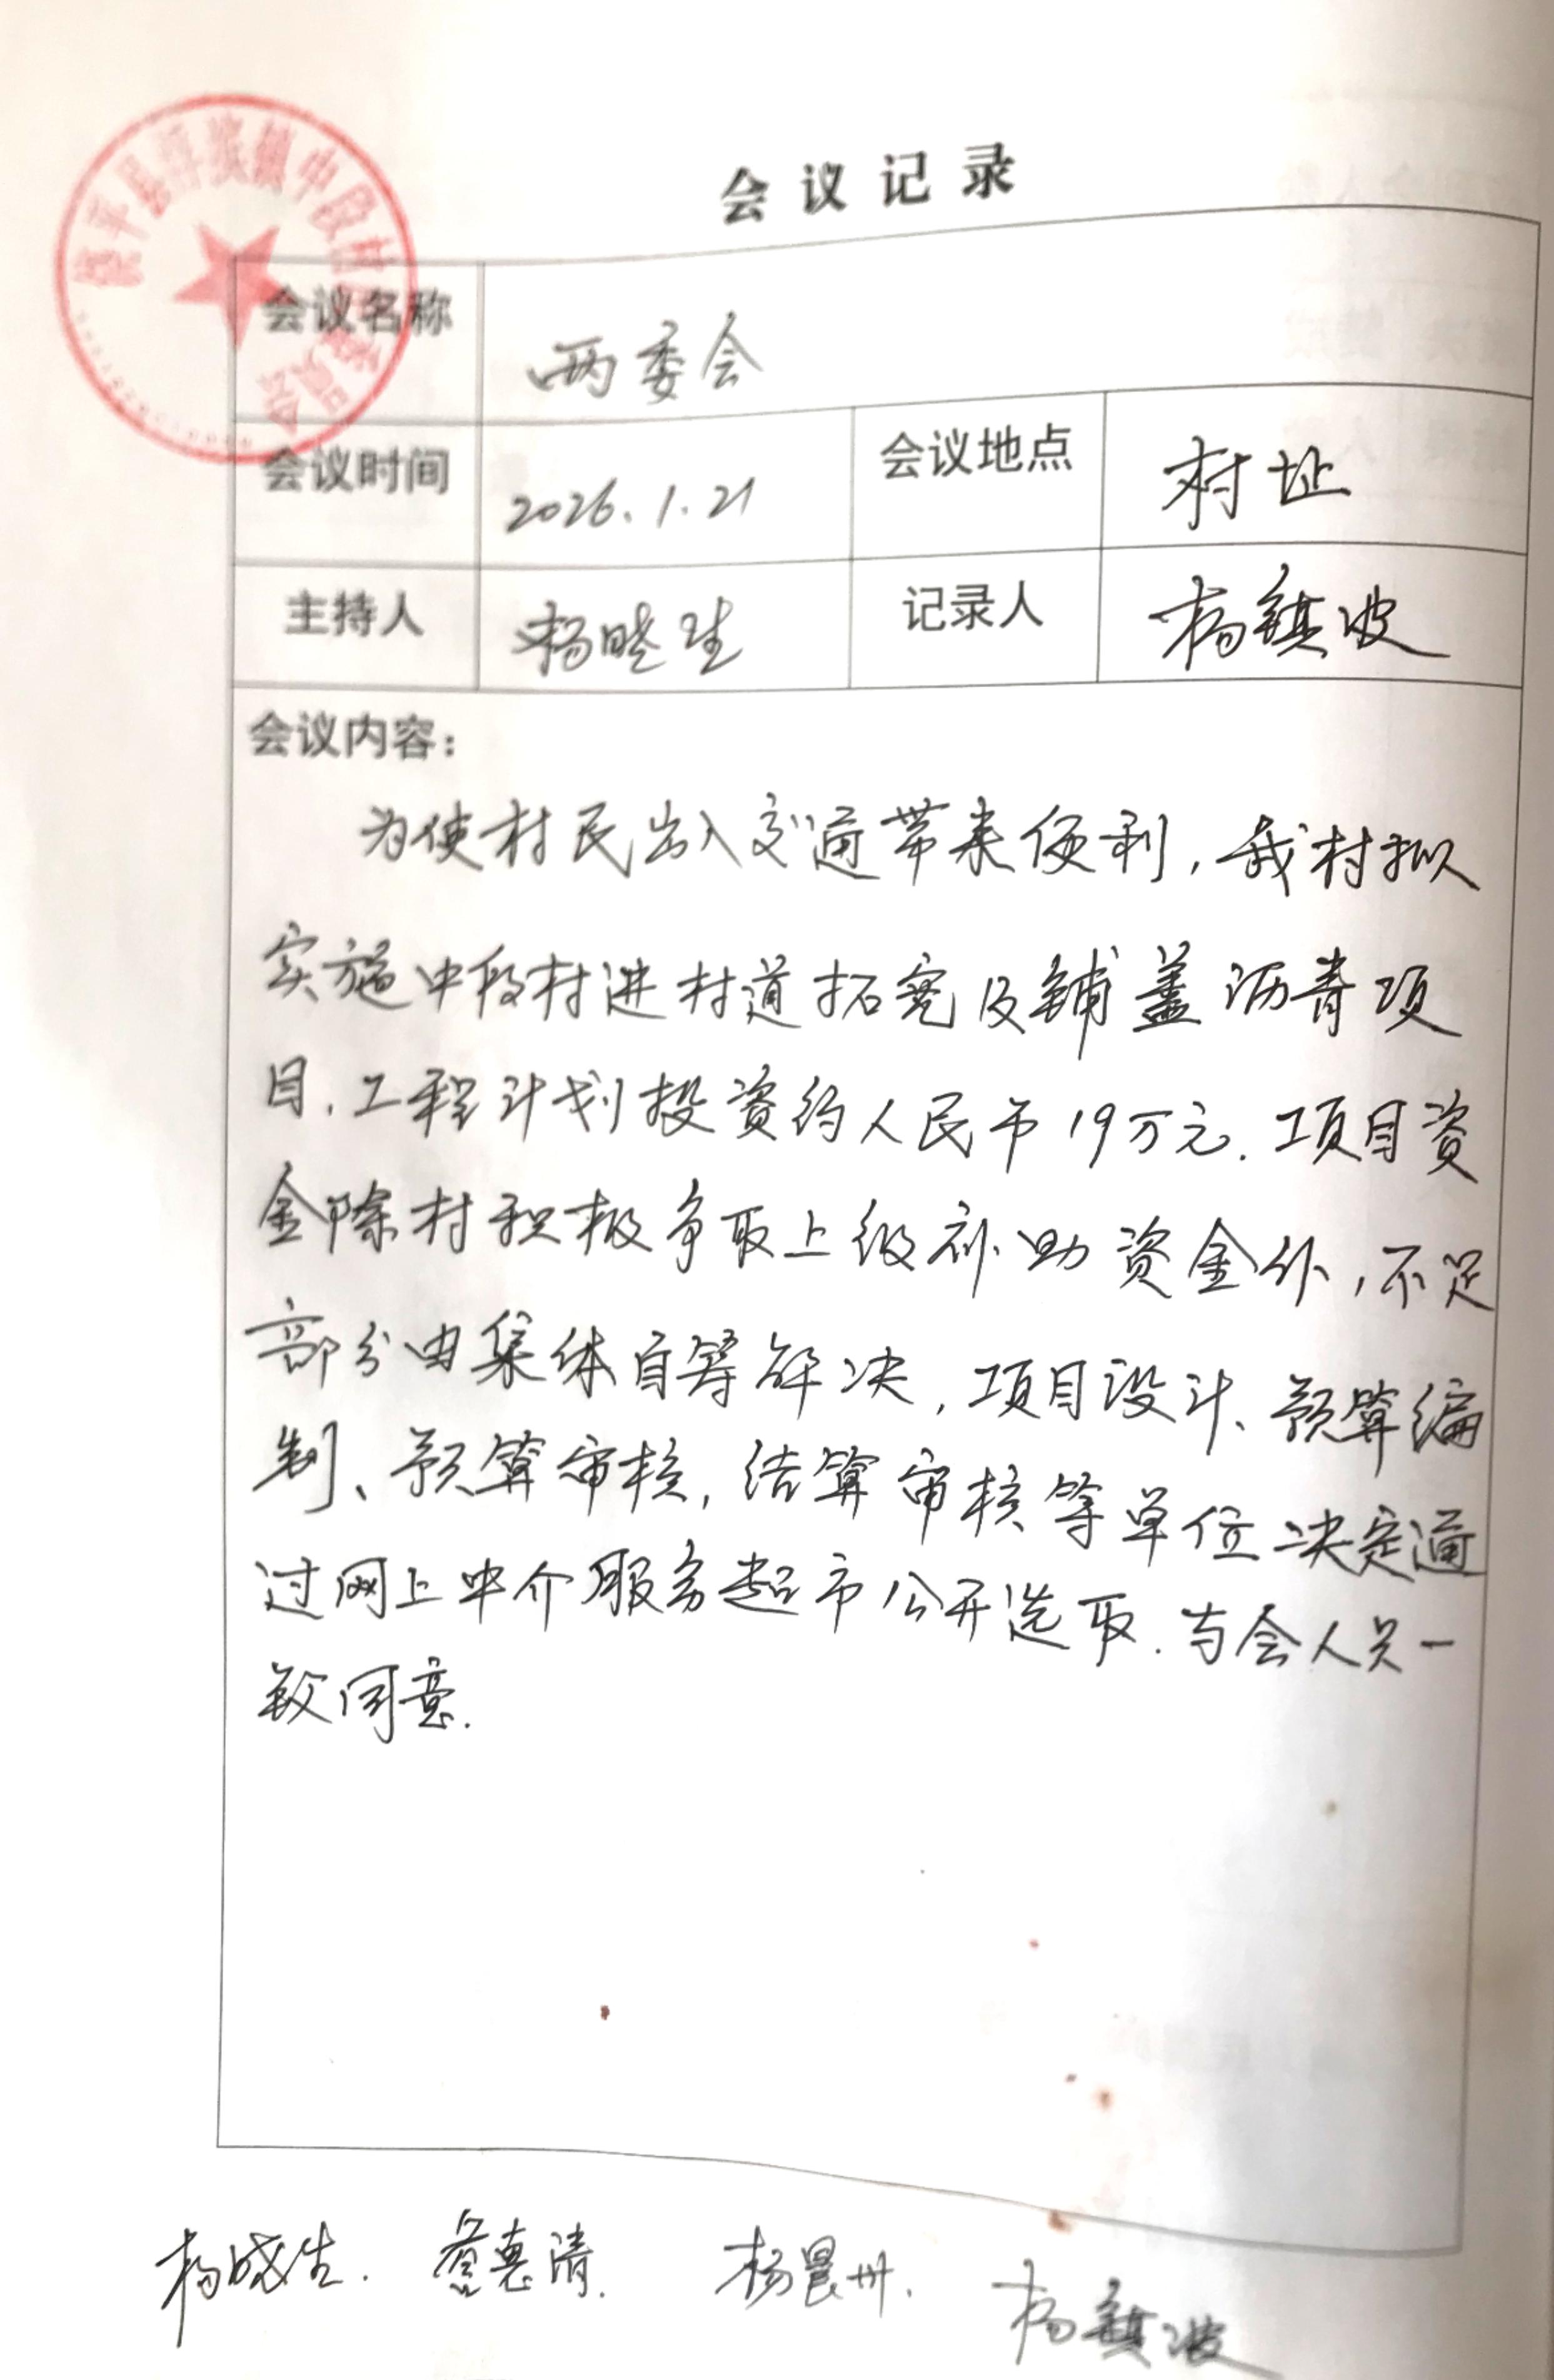 饶平县浮滨镇中段村村民委员会
会议记录
会议名称 两委会
会议时间 2026.1.21 会议地点 村址
主持人 杨晓生 记录人 杨镇波
会议内容：
为使村民出入交通带来便利，我村拟
实施中段村进村道拓宽及铺盖沥青项
目.工程计划投资约人民币19万元.项目资
金除村积极争取上级补助资金外，不足
部分由集体自筹解决，项目设计、预算编
制、预算审核，结算审核等单位决定通
过网上中介服务超市公开选取.与会人员一
致同意.
杨晓生. 詹惠清. 杨晨州. 杨镇波